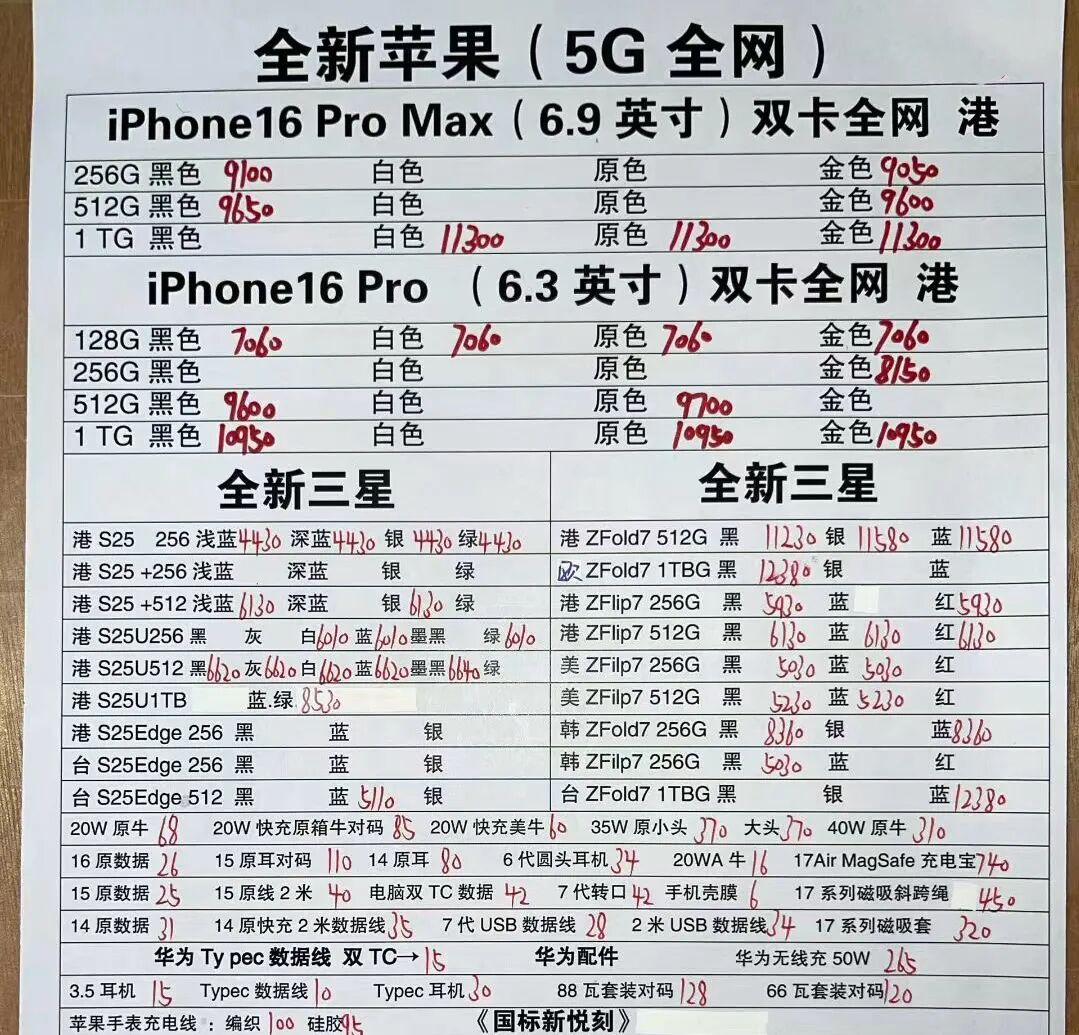 全新苹果（5G 全网）
iPhone16 Pro Max（6.9 英寸）双卡全网 港
256G 黑色 9100 白色 原色 金色 9050
512G 黑色 9650 白色 原色 金色 9600
1 TG 黑色 白色 11300 原色 11300 金色 11300
iPhone16 Pro （6.3 英寸）双卡全网 港
128G 黑色 7060 白色 7060 原色 7060 金色 7060
256G 黑色 白色 原色 金色 8150
512G 黑色 9600 白色 原色 9700 金色
1 TG 黑色 10950 白色 原色 10950 金色 10950
全新三星
港 S25 256 浅蓝 4430 深蓝 4430 银 4430 绿 4430
港 S25 +256 浅蓝 深蓝 银 绿
港 S25 +512 浅蓝 6130 深蓝 银 6130 绿
港 S25U256 黑 灰 白 6010 蓝 6010 墨黑 绿 6010
港 S25U512 黑 6620 灰 6620 白 6620 蓝 6620 墨黑 6640 绿
港 S25U1TB 蓝.绿 8530
港 S25Edge 256 黑 蓝 银
台 S25Edge 256 黑 蓝 银
台 S25Edge 512 黑 蓝 5110 银
全新三星
港 ZFold7 512G 黑 11230 银 11580 蓝 11580
欧 ZFold7 1TBG 黑 12380 银 蓝
港 ZFlip7 256G 黑 5930 蓝 红 5930
港 ZFlip7 512G 黑 6130 蓝 6130 红 6130
美 ZFilp7 256G 黑 5030 蓝 5030 红
美 ZFilp7 512G 黑 5230 蓝 5230 红
韩 ZFold7 256G 黑 8360 银 蓝 8360
韩 ZFilp7 256G 黑 5030 蓝 红
台 ZFold7 1TBG 黑 银 蓝 12380
20W 原牛 68 20W 快充原箱牛对码 85 20W 快充美牛 60 35W 原小头 370 大头 370 40W 原牛 310
16 原数据 26 15 原耳对码 110 14 原耳 80 6 代圆头耳机 34 20WA 牛 16 17Air MagSafe 充电宝 740
15 原数据 25 15 原线 2 米 40 电脑双 TC 数据 42 7 代转口 42 手机壳膜 6 17 系列磁吸斜跨绳 450
14 原数据 31 14 原快充 2 米数据线 35 7 代 USB 数据线 28 2 米 USB 数据线 34 17 系列磁吸套 320
华为 Ty pec 数据线 双 TC→ 15 华为配件 华为无线充 50W 265
3.5 耳机 15 Typec 数据线 10 Typec 耳机 30 88 瓦套装对码 128 66 瓦套装对码 120
苹果手表充电线 ：编织 100 硅胶 95 《国标新悦刻》